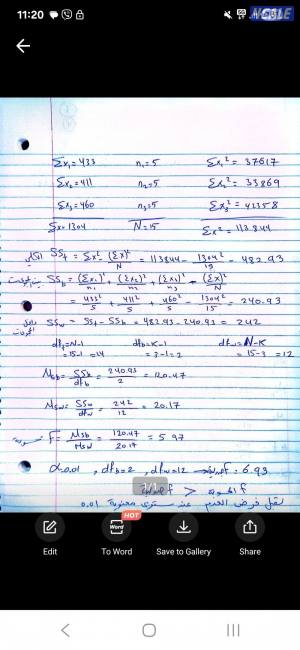 11:20
NOBLE
Σx₁ = 433 n₁ = 5 Σx₁² = 37617
Σx₂ = 411 n₂ = 5 Σx₂² = 33869
Σx₃ = 460 n₃ = 5 Σx₃² = 42358
Σx = 1304 N = 15 Σx² = 113844
SSt = Σx² - (Σx)²/N = 113844 - 1304²/15 = 482.93
SSb = (Σx₁)²/n₁ + (Σx₂)²/n₂ + (Σx₃)²/n₃ - (Σx)²/N
= 433²/5 + 411²/5 + 460²/5 - 1304²/15 = 240.93
SSw = SSt - SSb = 482.93 - 240.93 = 242
dft = N-1 dfb = K-1 dfw = N-K
= 15-1 = 14 = 3-1 = 2 = 15-3 = 12
Msb = SSb/dfb = 240.93/2 = 120.47
Msw = SSw/dfw = 242/12 = 20.17
F = Msb/Msw = 120.47/20.17 = 5.97
α 0.01 , dfb = 2 , dfw = 12 f = 6.93
f > f
نقبل فرض العدم عند مستوى معنوية 0.01
Edit
To Word
HOT
Save to Gallery
Share